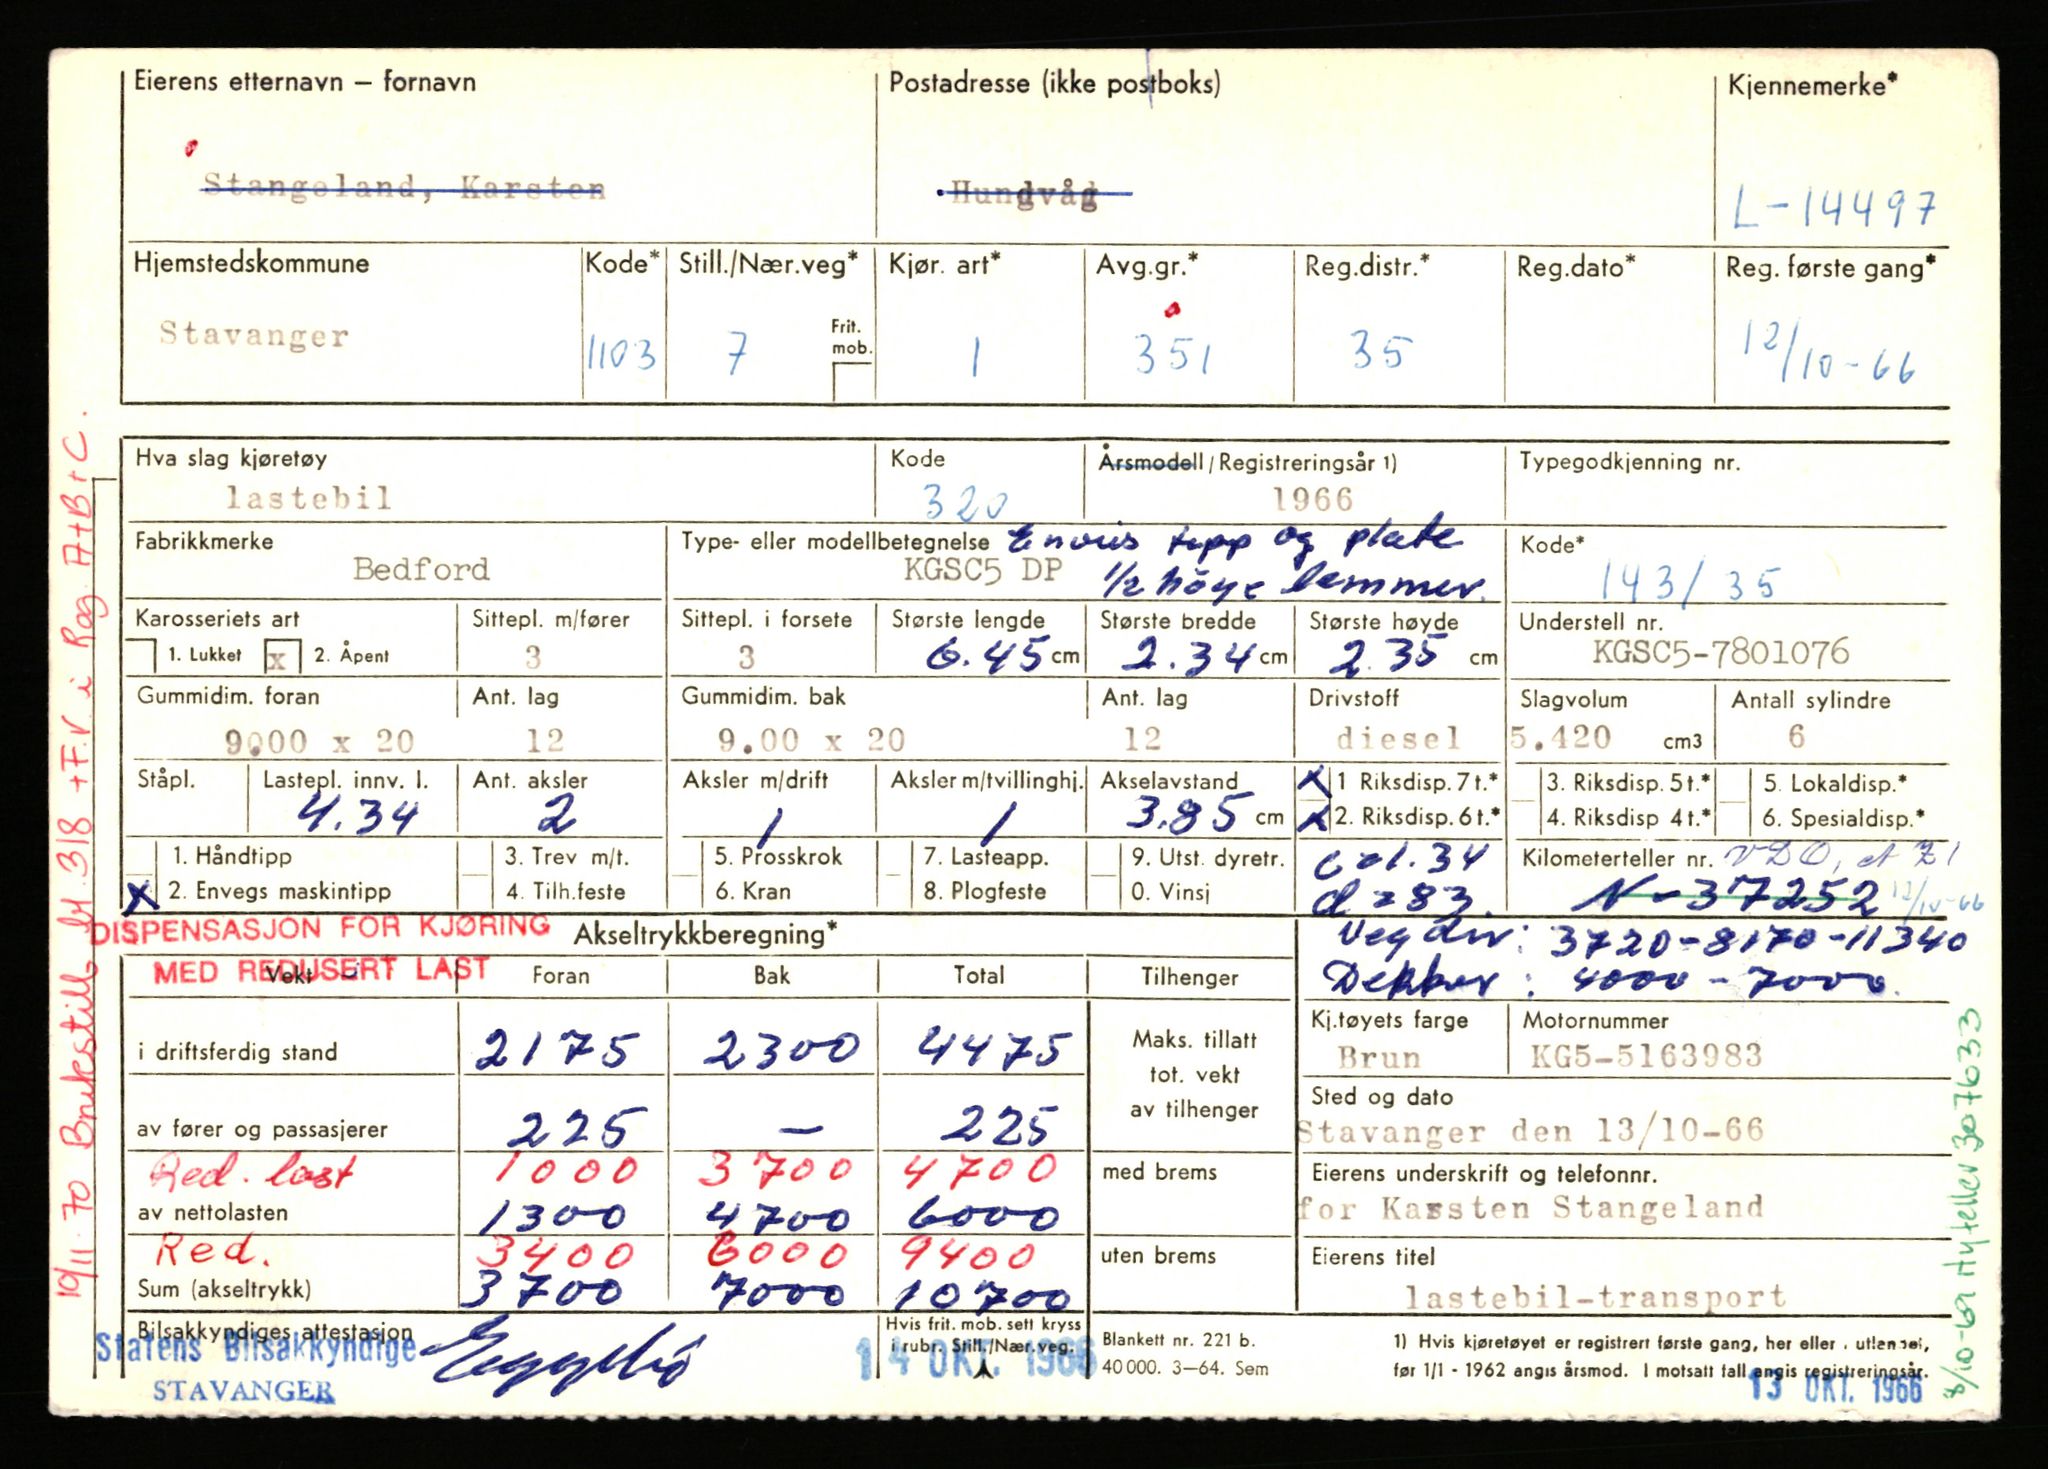 Eierens etternavn – fornavn
Postadresse (ikke postboks)
Kjennemerke*
Stangeland, Karsten
Hundvåg
L-14497
Hjemstedskommune
Kode*
Still./Nær.veg*
Kjør. art*
Avg.gr.*
Reg.distr.*
Reg.dato*
Reg. første gang*
Stavanger
1103
7
Frit. mob.
1
351
35
12/10-66
Hva slag kjøretøy
Kode
Årsmodell / Registreringsår 1)
Typegodkjenning nr.
lastebil
320
1966
Fabrikkmerke
Type- eller modellbetegnelse
Enveis tipp og plate
Kode*
Bedford
KGSC5 DP
1/2 høye lemmer.
143/35
Karosseriets art
Sittepl. m/fører
Sittepl. i forsete
Største lengde
Største bredde
Største høyde
Understell nr.
1. Lukket
x
2. Åpent
3
3
6.45 cm
2.34 cm
2.35 cm
KGSC5-7801076
Gummidim. foran
Ant. lag
Gummidim. bak
Ant. lag
Drivstoff
Slagvolum
Antall sylindre
9.00 x 20
12
9.00 x 20
12
diesel
5.420 cm3
6
Ståpl.
Lastepl. innv. l.
Ant. aksler
Aksler m/drift
Aksler m/tvillinghj.
Akselavstand
x 1 Riksdisp. 7 t.*
3. Riksdisp. 5 t.*
5. Lokaldisp.*
4.34
2
1
1
3.85 cm
x 2. Riksdisp. 6 t.*
4. Riksdisp 4 t.*
6. Spesialdisp.*
1. Håndtipp
3. Trev m/t.
5. Prosskrok
7. Lasteapp.
9. Utst. dyretr.
c=1.34
Kilometerteller nr.
x 2. Envegs maskintipp
4. Tilh.feste
6. Kran
8. Plogfeste
0. Vinsj
d=83.
N-37252
12/10-66
DISPENSASJON FOR KJØRING
MED REDUSERT LAST
Akseltrykkberegning*
3720-8170-11340
Dekker: 4000-7000.
Vekt
Foran
Bak
Total
Tilhenger
Kj.tøyets farge
Motornummer
i driftsferdig stand
2175
2300
4475
Maks. tillatt
tot. vekt
av tilhenger
Brun
KG5-5163983
Sted og dato
av fører og passasjerer
225
–
225
Stavanger den 13/10-66
Red. last
1000
3700
4700
med brems
Eierens underskrift og telefonnr.
av nettolasten
1300
4700
6000
for Karsten Stangeland
Red.
3400
6000
9400
uten brems
Eierens titel
Sum (akseltrykk)
3700
7000
10700
lastebil-transport
Bilsakkyndiges attestasjon
Statens Bilsakkyndige
STAVANGER
Hvis frit. mob. sett kryss
i rubr. Still./Nær.veg.
14 OKT. 1966
Blankett nr. 221 b.
40 000. 3–64. Sem
1) Hvis kjøretøyet er registrert første gang, her eller i utlandet,
før 1/1 - 1962 angis årsmod. I motsatt fall angis registreringsår.
13 OKT. 1966
10/11-70 Brukstill. bl. 318 + F.V. i Rog A+B+C.
8/10-69 Ny teller 307633